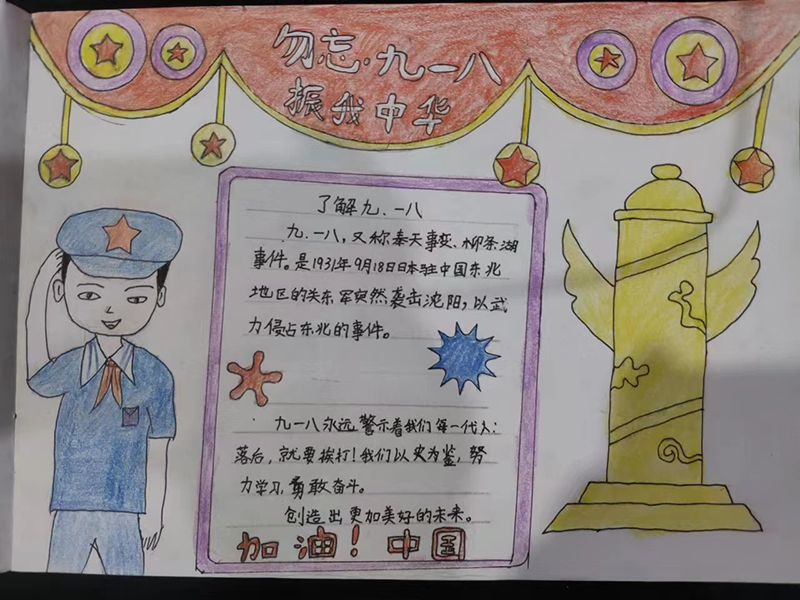 勿忘·九一八
振我中华
了解九.一八
九.一八，又称奉天事变、柳条湖
事件。是1931年9月18日日本驻中国东北
地区的关东军突然袭击沈阳，以武
力侵占东北的事件。
九一八永远警示着我们每一代人：
落后，就要挨打！我们以史为鉴，努
力学习，勇敢奋斗。
创造出更加美好的未来。
加油！中国